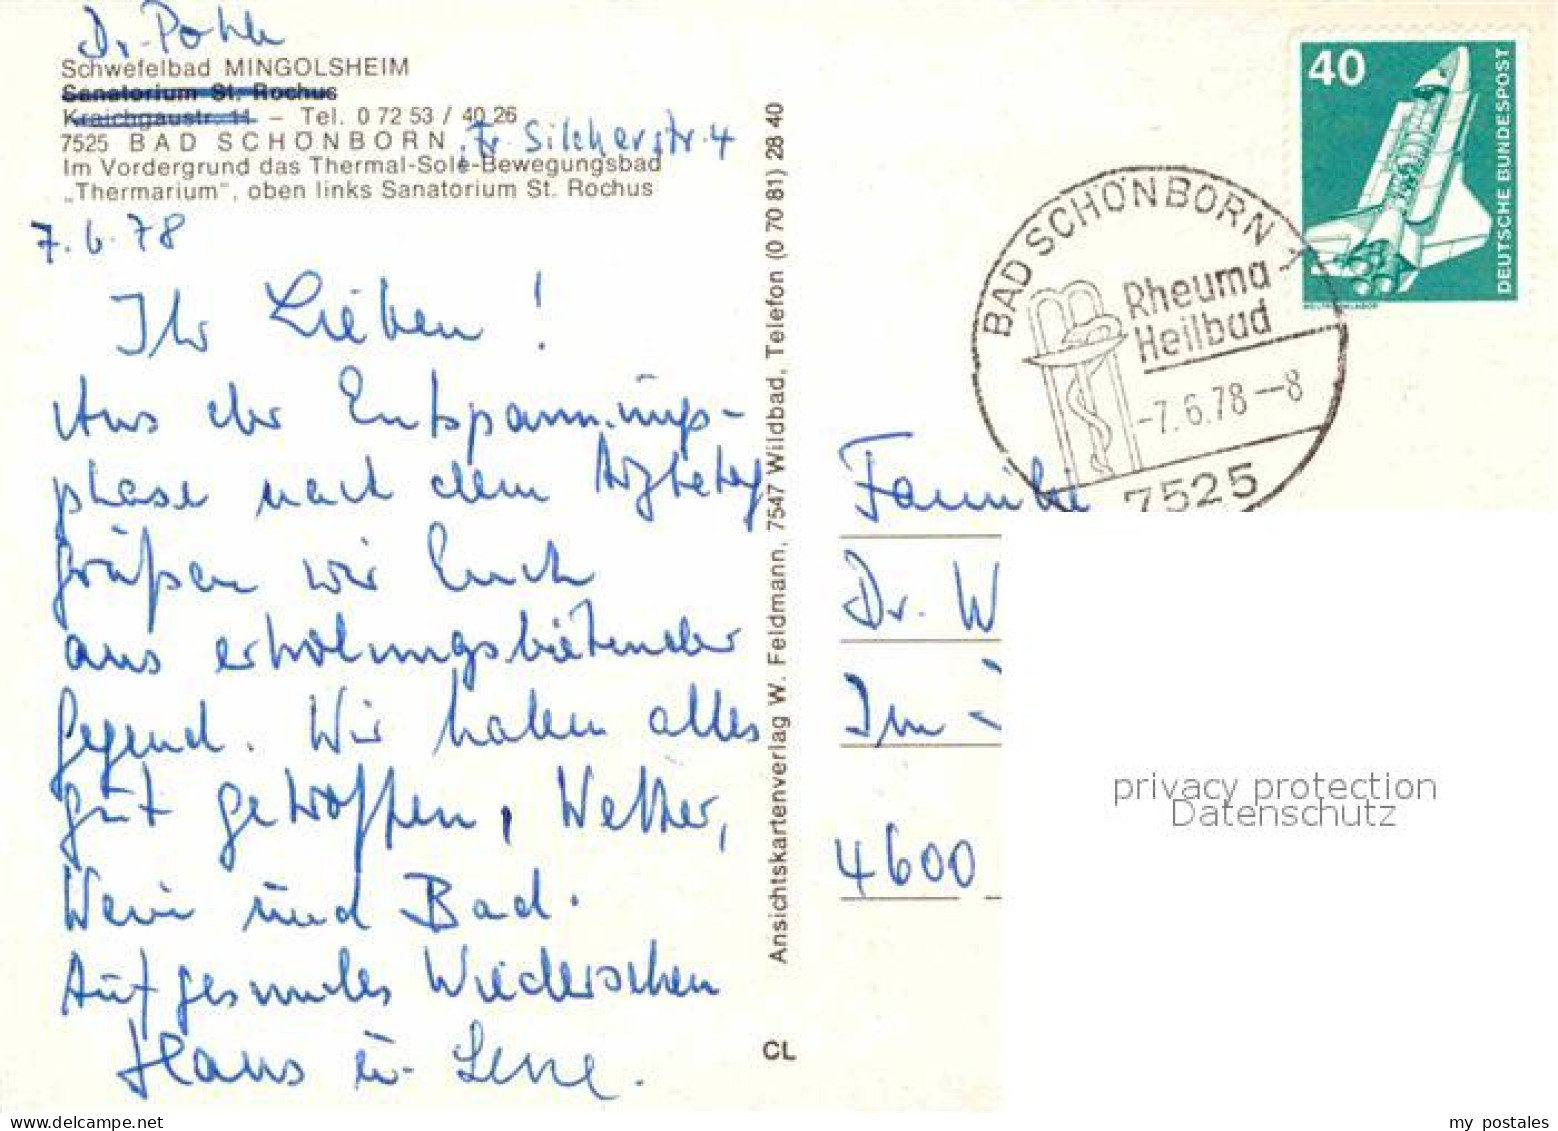 Dr. Pohle
Schwefelbad MINGOLSHEIM
Sanatorium St. Rochus
Kraichgaustr. 11 – Tel. 0 72 53 / 40 26
7525 BAD SCHÖNBORN, Fr. Silcherstr. 4
Im Vordergrund das Thermal-Sole-Bewegungsbad
„Thermarium", oben links Sanatorium St. Rochus
7.6.78
Ihr Lieben!
Aus der Entspannungs-
phase nach dem Ärztetag
grüßen wir Euch
aus erholungsbietender
Gegend. Wir haben alles
gut getroffen, Wetter,
Wein und Bad.
Auf gesundes Wiedersehen
Hans u. Lene.
Ansichtskartenverlag W. Feldmann, 7547 Wildbad, Telefon (0 70 81) 28 40
CL
40
DEUTSCHE BUNDESPOST
BAD SCHÖNBORN
Rheuma
Heilbad
-7.6.78--8
7525
Familie
Dr. W
Im
4600
privacy protection
Datenschutz
my postales